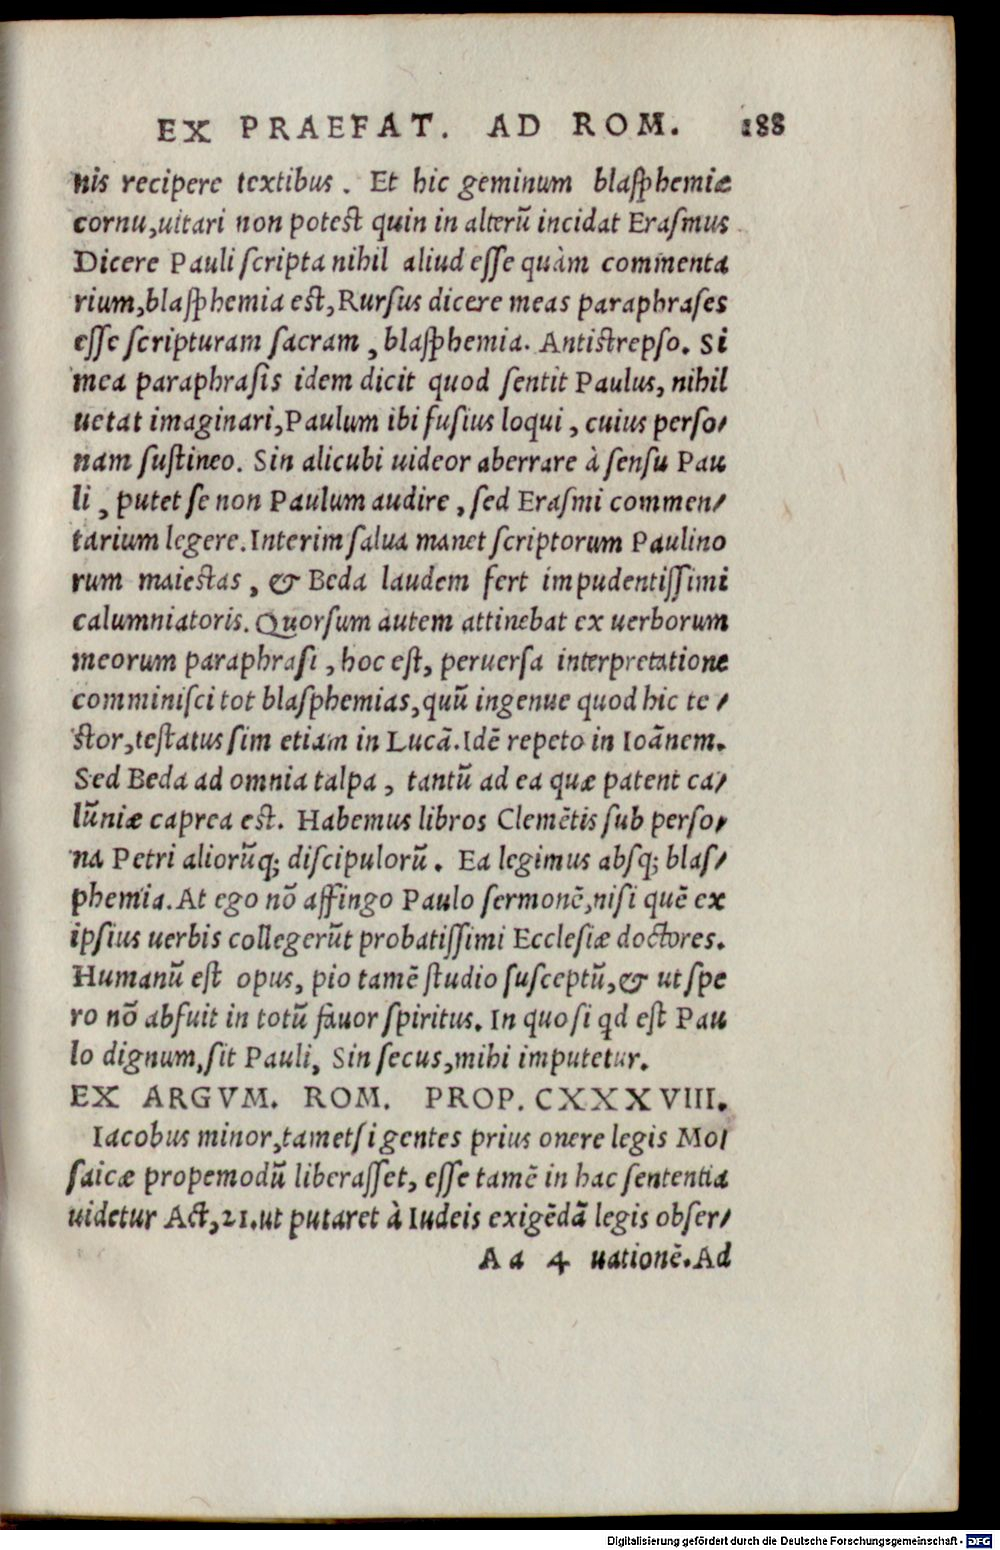 EX PRAEFAT. AD ROM. 188
nis recipere textibus. Et hic geminum blasphemiæ
cornu, uitari non potest quin in alterũ incidat Erasmus
Dicere Pauli scripta nihil aliud esse quàm commenta
rium, blasphemia est, Rursus dicere meas paraphrases
esse scripturam sacram, blasphemia. Antistrepso. Si
mea paraphrasis idem dicit quod sentit Paulus, nihil
uetat imaginari, Paulum ibi fusius loqui, cuius perso/
nam sustineo. Sin alicubi uideor aberrare à sensu Pau
li, putet se non Paulum audire, sed Erasmi commen/
tarium legere. Interim salua manet scriptorum Paulino
rum maiestas, & Beda laudem fert impudentissimi
calumniatoris. Quorsum autem attinebat ex uerborum
meorum paraphrasi, hoc est, peruersa interpretatione
comminisci tot blasphemias, quũ ingenue quod hic te/
stor, testatus sim etiam in Lucã. Idẽ repeto in Ioãnem.
Sed Beda ad omnia talpa, tantũ ad ea quæ patent ca/
lũniæ caprea est. Habemus libros Clemẽtis sub perso/
na Petri aliorũq; discipulorũ. Ea legimus absq; blas/
phemia. At ego nõ affingo Paulo sermonẽ, nisi quẽ ex
ipsius uerbis collegerũt probatissimi Ecclesiæ doctores.
Humanũ est opus, pio tamẽ studio susceptũ, & ut spe
ro nõ abfuit in totũ fauor spiritus. In quo si qd est Pau
lo dignum, sit Pauli, Sin secus, mihi imputetur.
EX ARGVM. ROM. PROP. CXXXVIII.
Iacobus minor, tametsi gentes prius onere legis Moi
saicæ propemodũ liberasset, esse tamẽ in hac sententia
uidetur Act, 21. ut putaret à Iudeis exigẽdã legis obser/
Aa 4 uationẽ. Ad
Digitalisierung gefördert durch die Deutsche Forschungsgemeinschaft - DFG